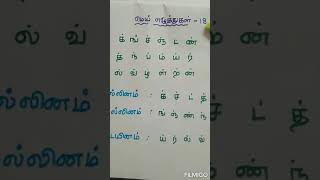 மெய் எழுத்துகள் - 18
க் ங் ச் ஞ் ட் ண்
த் ந் ப் ம் ய் ர்
ல் வ் ழ் ள் ற் ன்
ல்லினம் : க் ச் ட் த்
ல்லினம் : ங் ஞ் ண் ந்
டயினம் : ய் ர் ல் வ்
FILMIGO